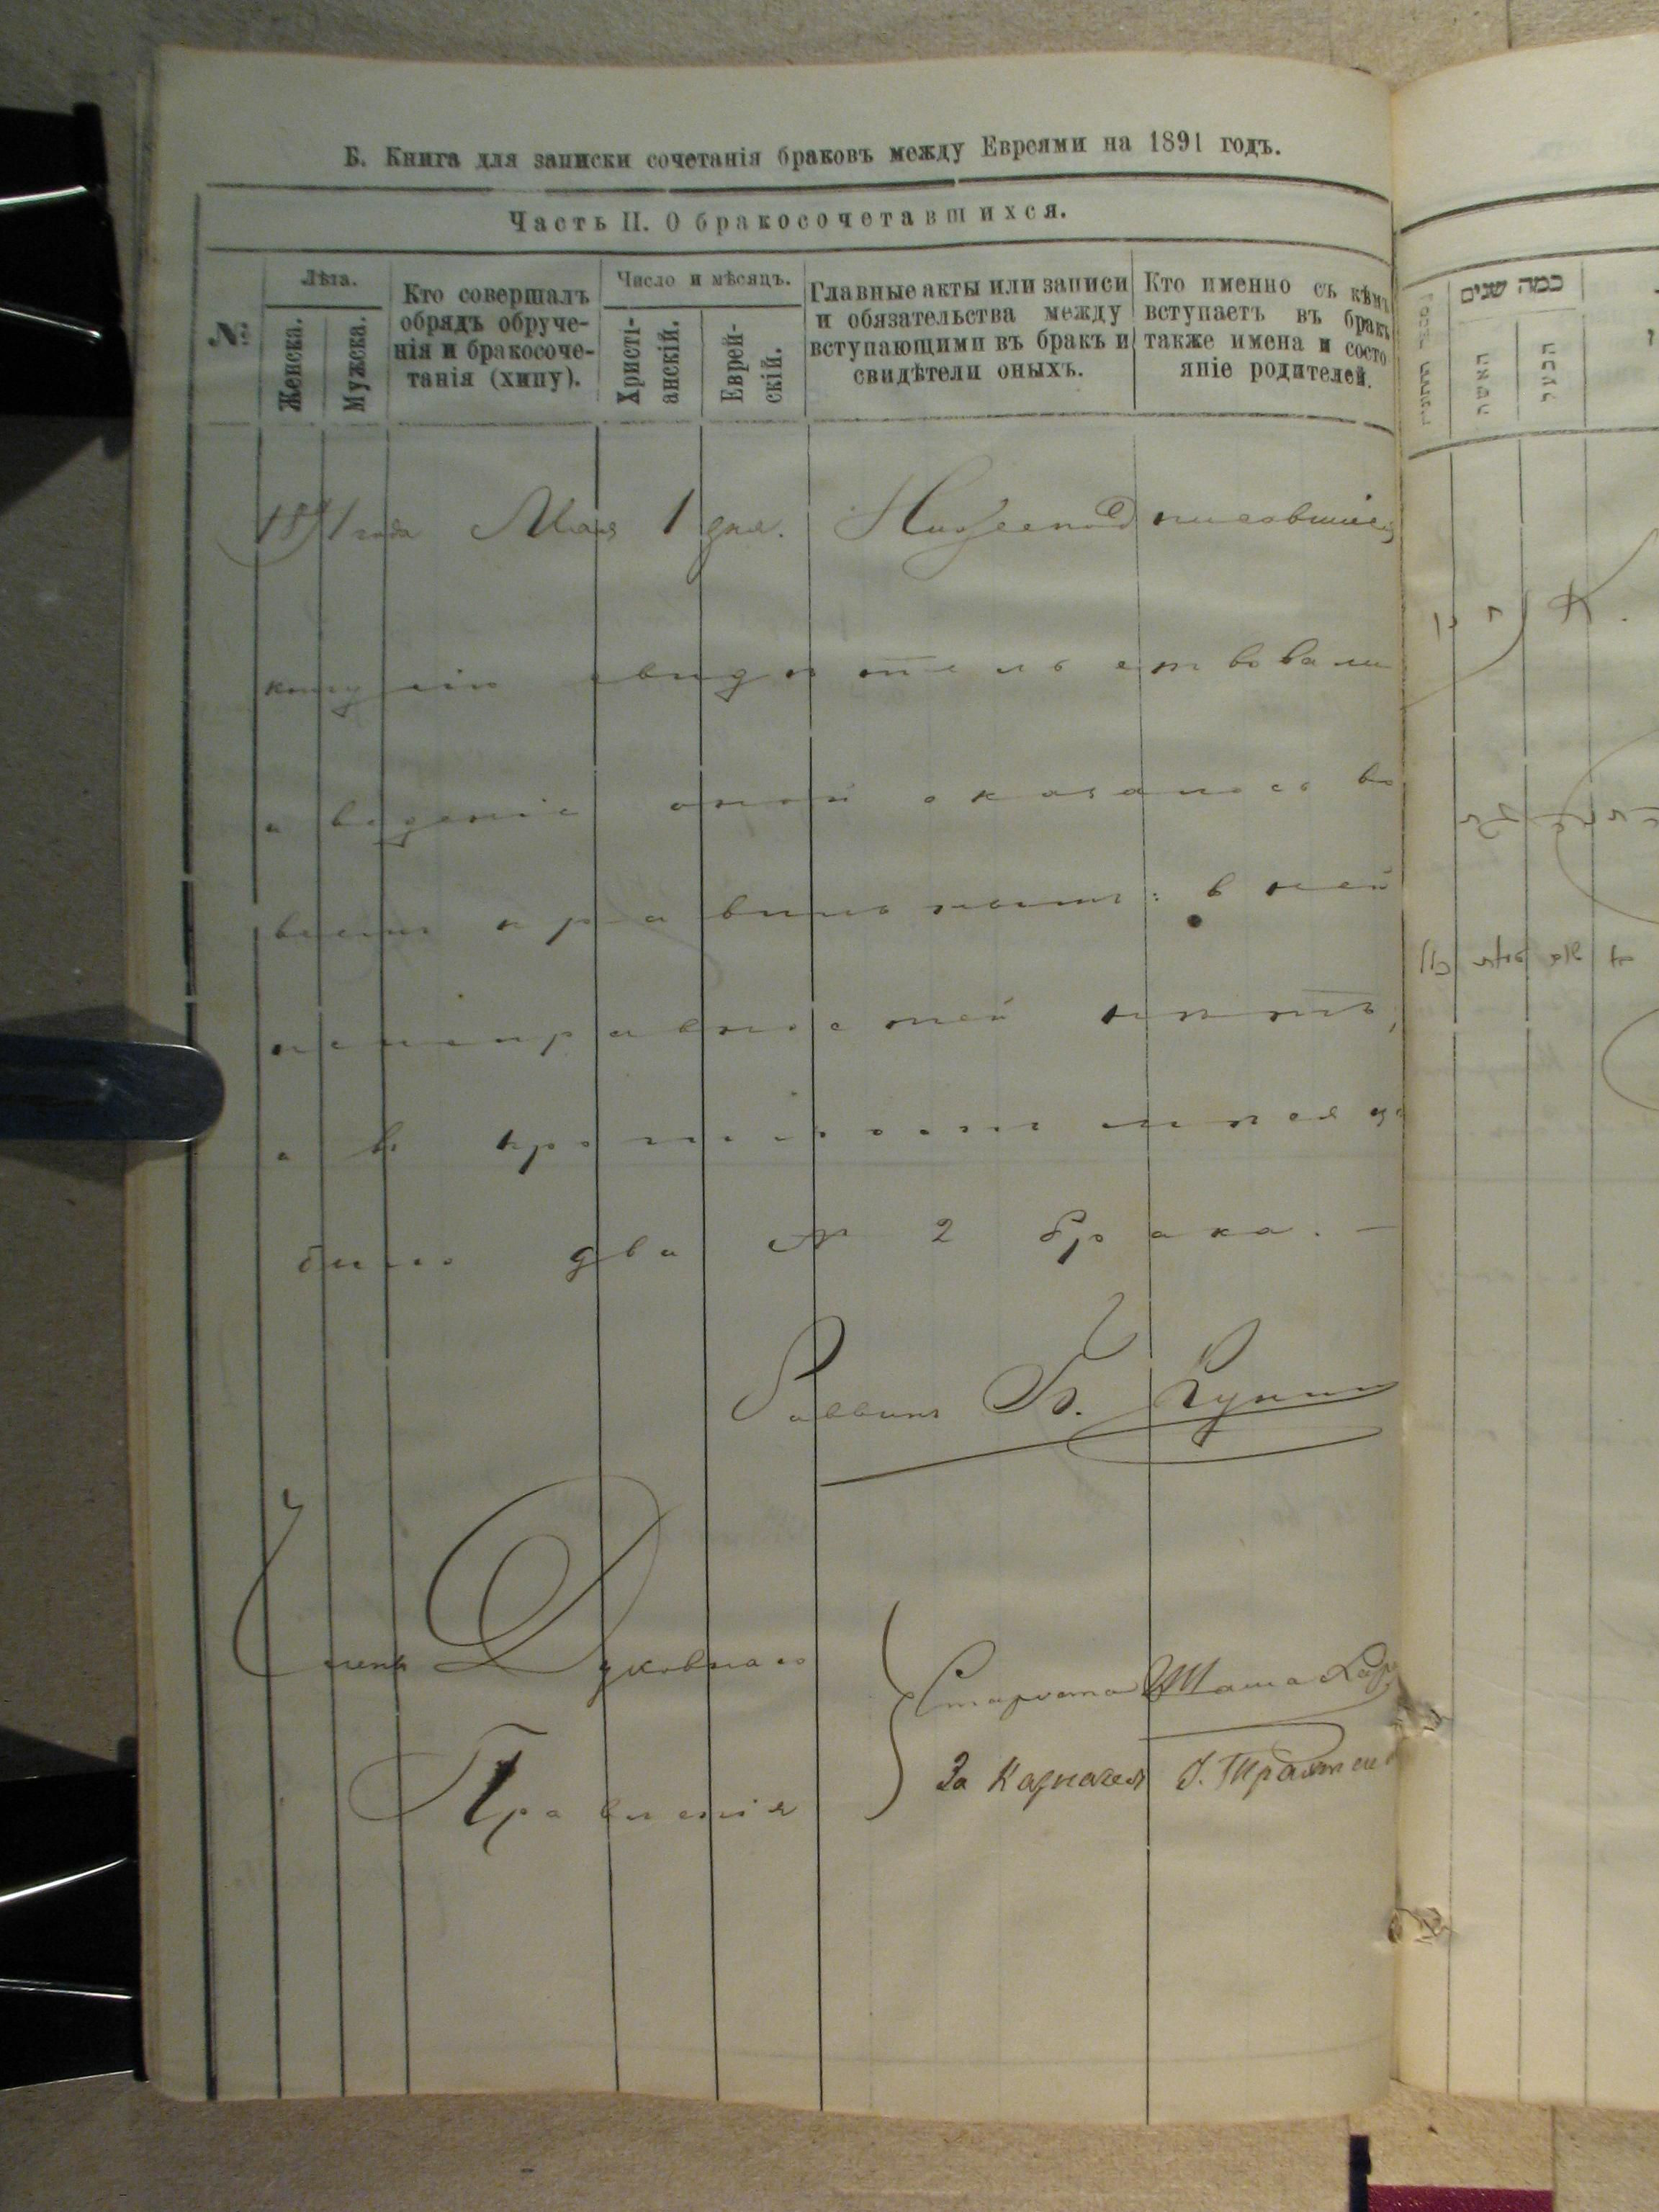 Б. Книга для записки сочетанія браковъ между Евреями на 1891 годъ.
Часть II. О бракосочетавшихся.
№
Лѣта.
Женска.
Мужска.
Кто совершалъ
обрядъ обруче-
нія и бракосоче-
танія (хипу).
Число и мѣсяцъ.
Христі-
анскій.
Еврей-
скій.
Главные акты или записи
и обязательства между
вступающими въ бракъ и
свидѣтели оныхъ.
Кто именно съ кѣмъ
вступаетъ въ бракъ
также имена и состо
яніе родителей.
1891 года Мая 1 дня. Нижеподписавшіеся
книгу сію свидѣтельствовали
и веденіе оной оказалось во
всемъ правильнымъ: в ней
неисправностей нѣтъ,
а в прошломъ мѣсяцѣ
было два № 2 брака. —
Раввинъ Б. Кунин
Члены Духовнаго
Правленія
Староста
За Казначея
כמה שנים
האשה
הבעל